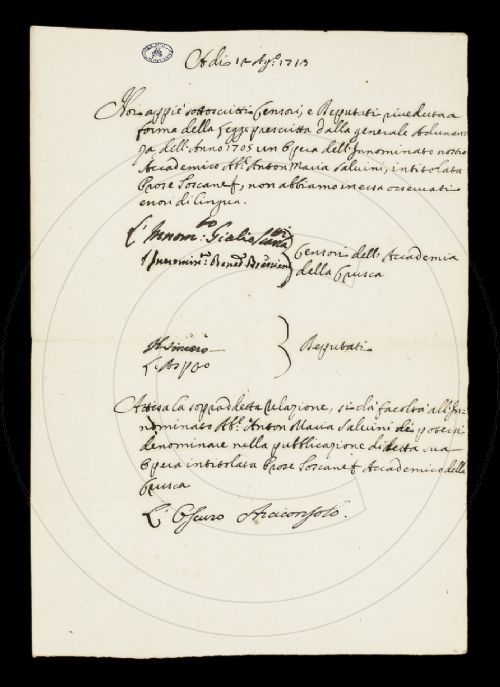 Adì 12 Ag.º 1713
Noi appiè sottoscritti Censori, e Deputati riveduta a
forma della Legge prescritta dalla generale Adunan-
za dell'Anno 1705 un Opera dell'Innominato nostro
Accademico Ab.e Anton Maria Salvini, intitolata
Prose Toscane, non abbiamo in essa osservati
errori di lingua.
L'Innom.to
l'Innomin.to Bened.
Censori dell'Accademia
della Crusca
Il Sincero
Deputati
Attesa la sopraddetta relazione, si dà facoltà all'In-
nominato Ab.e Anton Maria Salvini di potersi
denominare nella pubblicazione di detta sua
Opera intitolata Prose Toscane Accademico della
Crusca
L'Oscuro Arciconsolo.